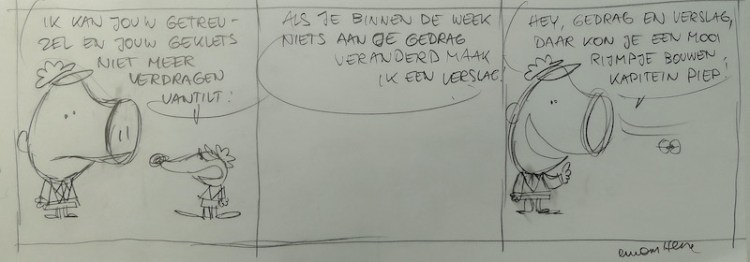 IK KAN JOUW GETREU-
ZEL EN JOUW GEKLETS
NIET MEER
VERDRAGEN
VANTILT!
ALS JE BINNEN DE WEEK
NIETS AAN JE GEDRAG
VERANDERD MAAK
IK EEN VERSLAG.
HEY, GEDRAG EN VERSLAG,
DAAR KON JE EEN MOOI
RIJMPJE BOUWEN,
KAPITEIN PIEP!